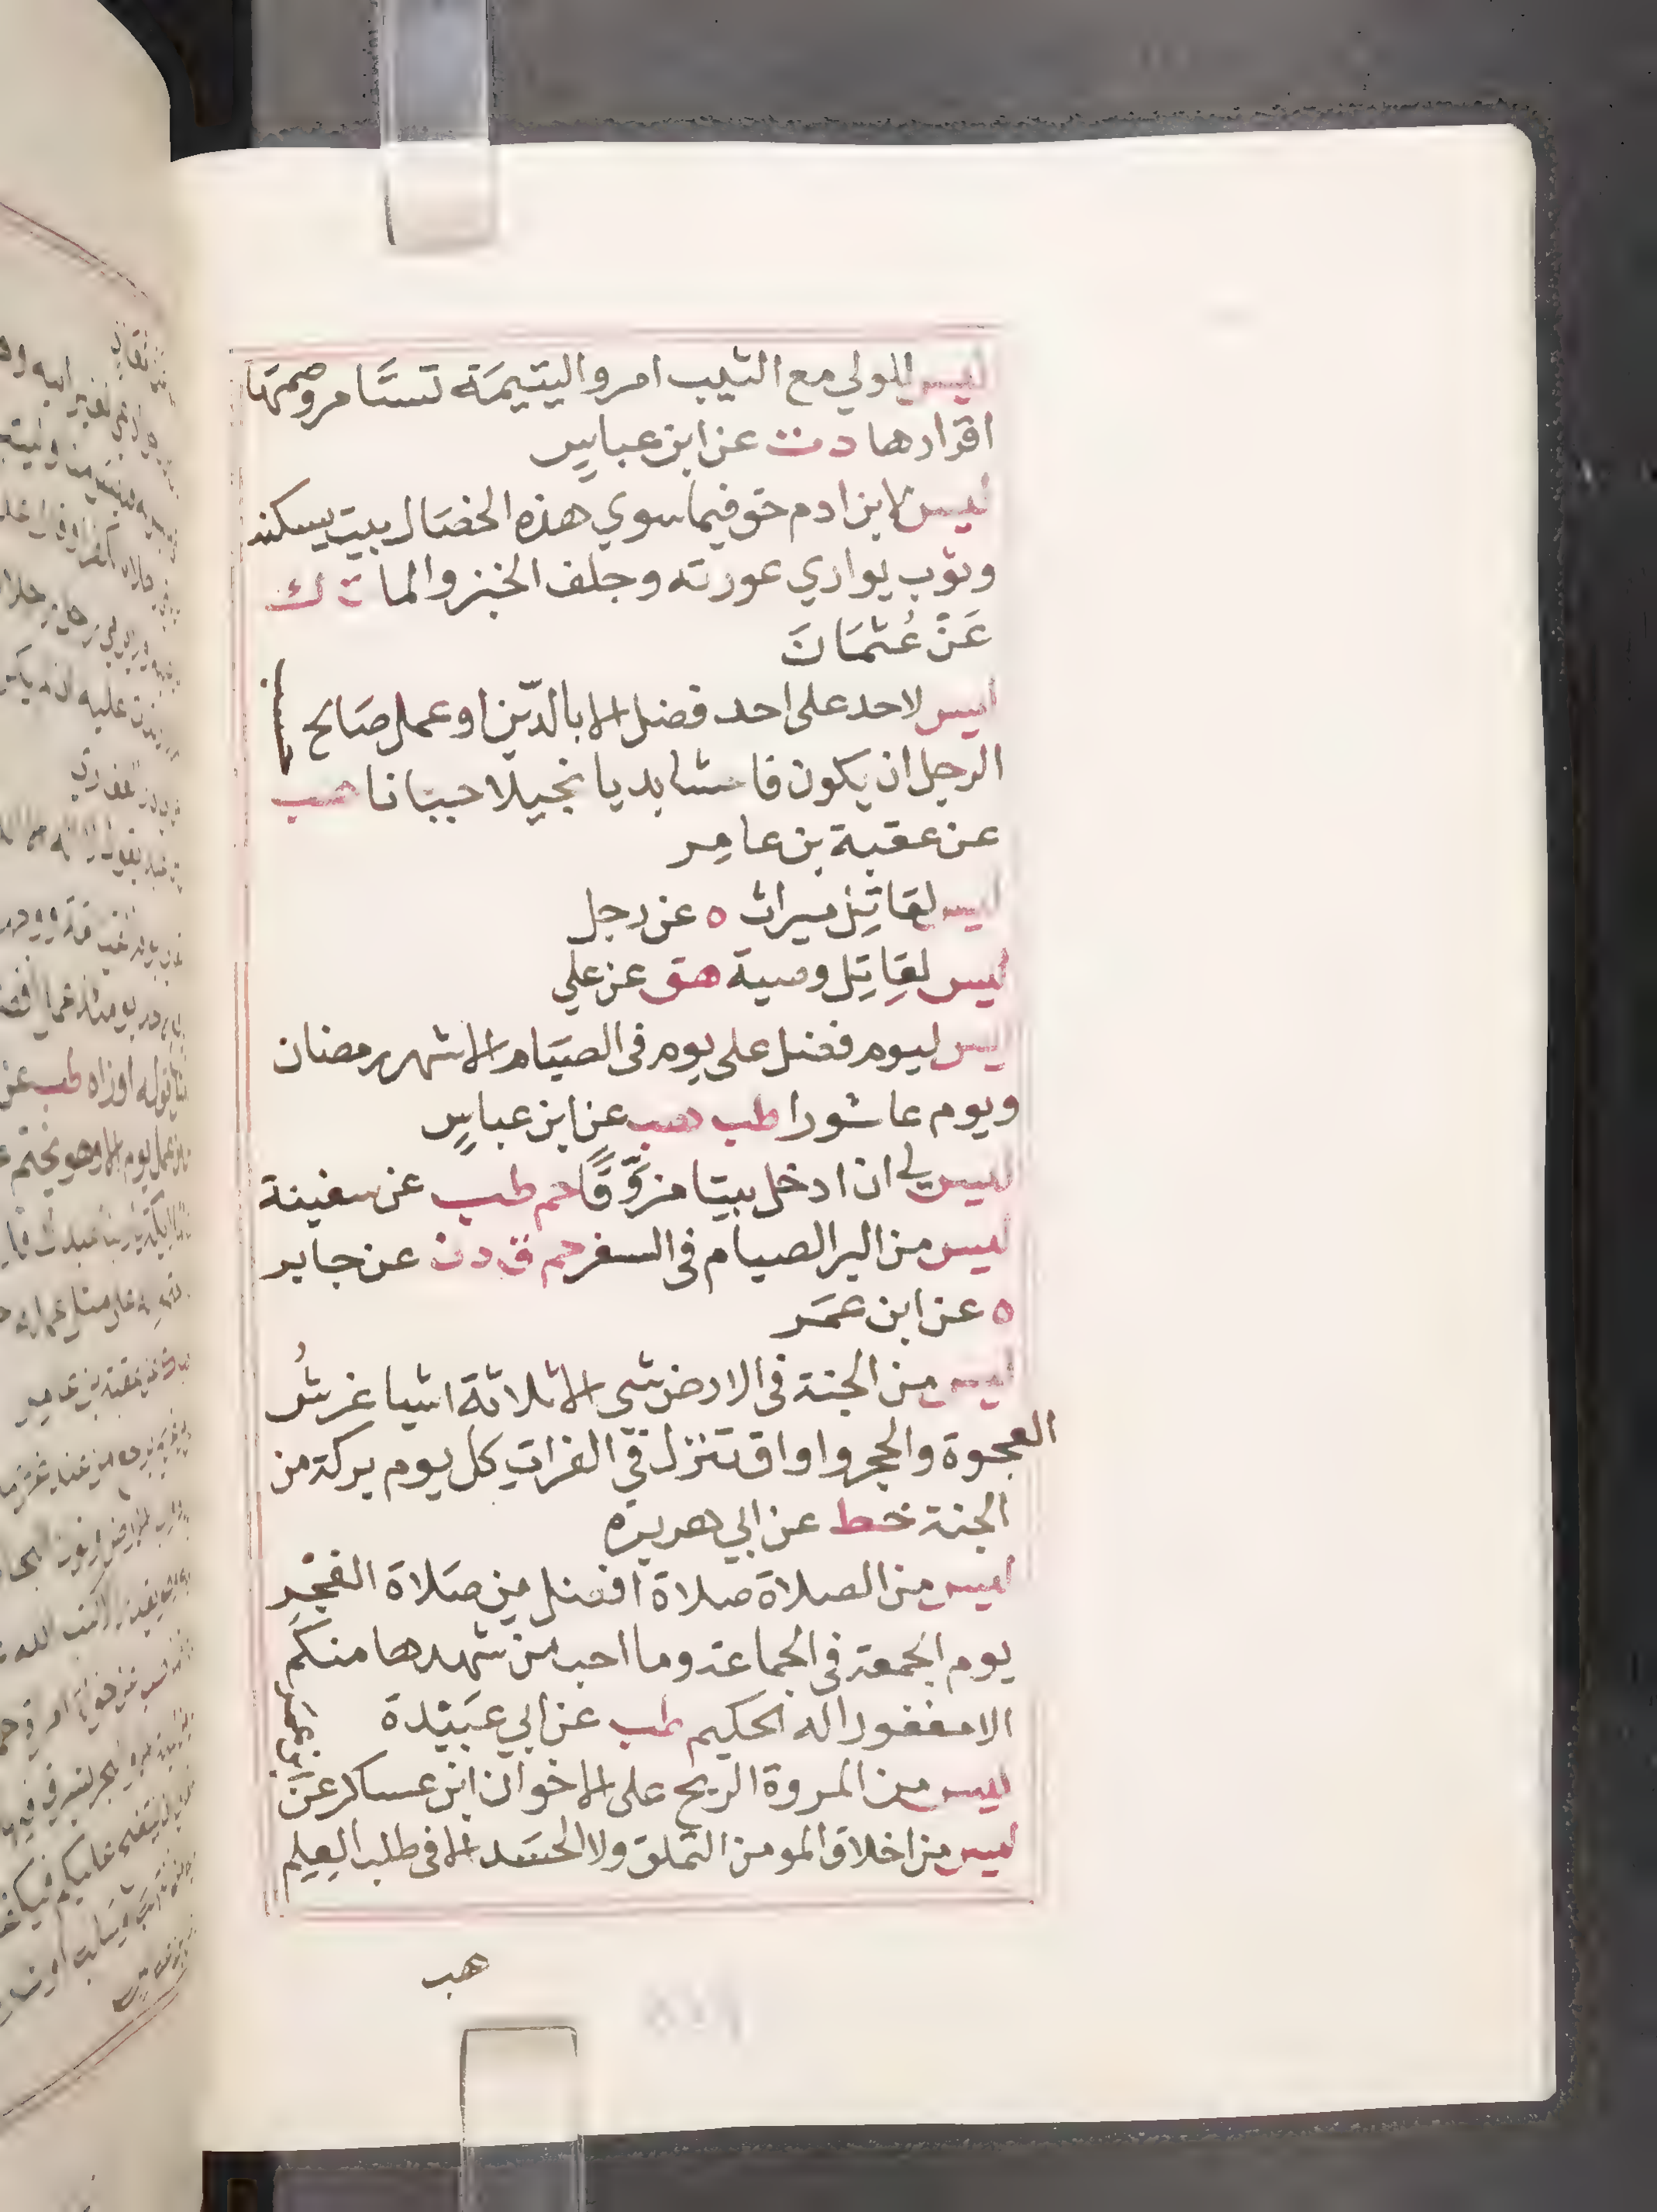 ليس للولي مع الثيب امر واليتيمة تستامر وصمتها
اقرارها د ن عن ابن عباس
ليس لابن ادم حق فيما سوي هذه الخصال بيت يسكنه
وثوب يواري عورته وجلف الخبز والما ت ك
عَنْ عُثمَانَ
ليس لاحد على احد فضل الا بالدّين او عمل صَالح
الرجل ان يكون فاحشا بديا بخيلا جبانا هب
عن عقبة بن عامِر
ليس لقاتِل ميراث ه عن رجل
ليس لقاتِل وصية هق عن علي
ليس ليوم فضل على يوم فى الصيَام الا شهر رمضان
ويوم عاشورا طب هب عن ابن عباسٍ
ليس لي ان ادخل بيتا مزوَّقًا حم طب عن سفينة
ليس من البر الصيام فى السفر حم ق د ن عن جابر
ه عن ابن عمَر
ليس من الجنة فى الارض شي الا ثلاثة اشيا غرسُ
العجوة والحجر واواق تنزل في الفرات كل يوم بركة من
الجنة خط عن ابي هريرة
ليس من الصلاة صلاة افضل مِن صَلاة الفجْرِ
يوم الجمعة فى الجماعة وما احب من شهدها منكم
الا مغفورا له الحكيم طب عن ابي عبَيْدة
ليس من المروة الربح على الاخوان ابن عساكر عَن
ليس من اخلاق المومن التملق ولا الحسَد الا فى طلب العِلم
هب